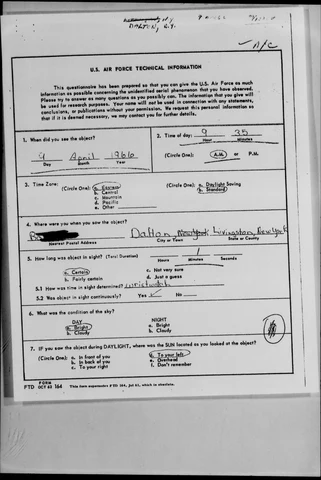 DALTON, N.Y.
U.S. AIR FORCE TECHNICAL INFORMATION
This questionnaire has been prepared so that you can give the U.S. Air Force as much
information as possible concerning the unidentified aerial phenomenon that you have observed.
Please try to answer as many questions as you possibly can. The information that you give will
be used for research purposes. Your name will not be used in connection with any statements,
conclusions, or publications without your permission. We request this personal information so
that if it is deemed necessary, we may contact you for further details.
1. When did you see the object?
9 April 1966
Day Month Year
2. Time of day: 9 35
Hour Minutes
(Circle One): A.M. or P.M.
3. Time Zone:
(Circle One): a. Eastern
b. Central
c. Mountain
d. Pacific
e. Other
(Circle One): a. Daylight Saving
b. Standard
4. Where were you when you saw the object?
Dalton, New York Livingston, New York
Nearest Postal Address City or Town State or County
5. How long was object in sight? (Total Duration) 1
Hours Minutes Seconds
a. Certain c. Not very sure
b. Fairly certain d. Just a guess
5.1 How was time in sight determined? wristwatch
5.2 Was object in sight continuously? Yes No
6. What was the condition of the sky?
DAY NIGHT
a. Bright a. Bright
b. Cloudy b. Cloudy
7. IF you saw the object during DAYLIGHT, where was the SUN located as you looked at the object?
(Circle One): a. In front of you d. To your left
b. In back of you e. Overhead
c. To your right f. Don't remember
FORM
FTD OCT 62 164 This form supersedes FTD 164, Jul 61, which is obsolete.